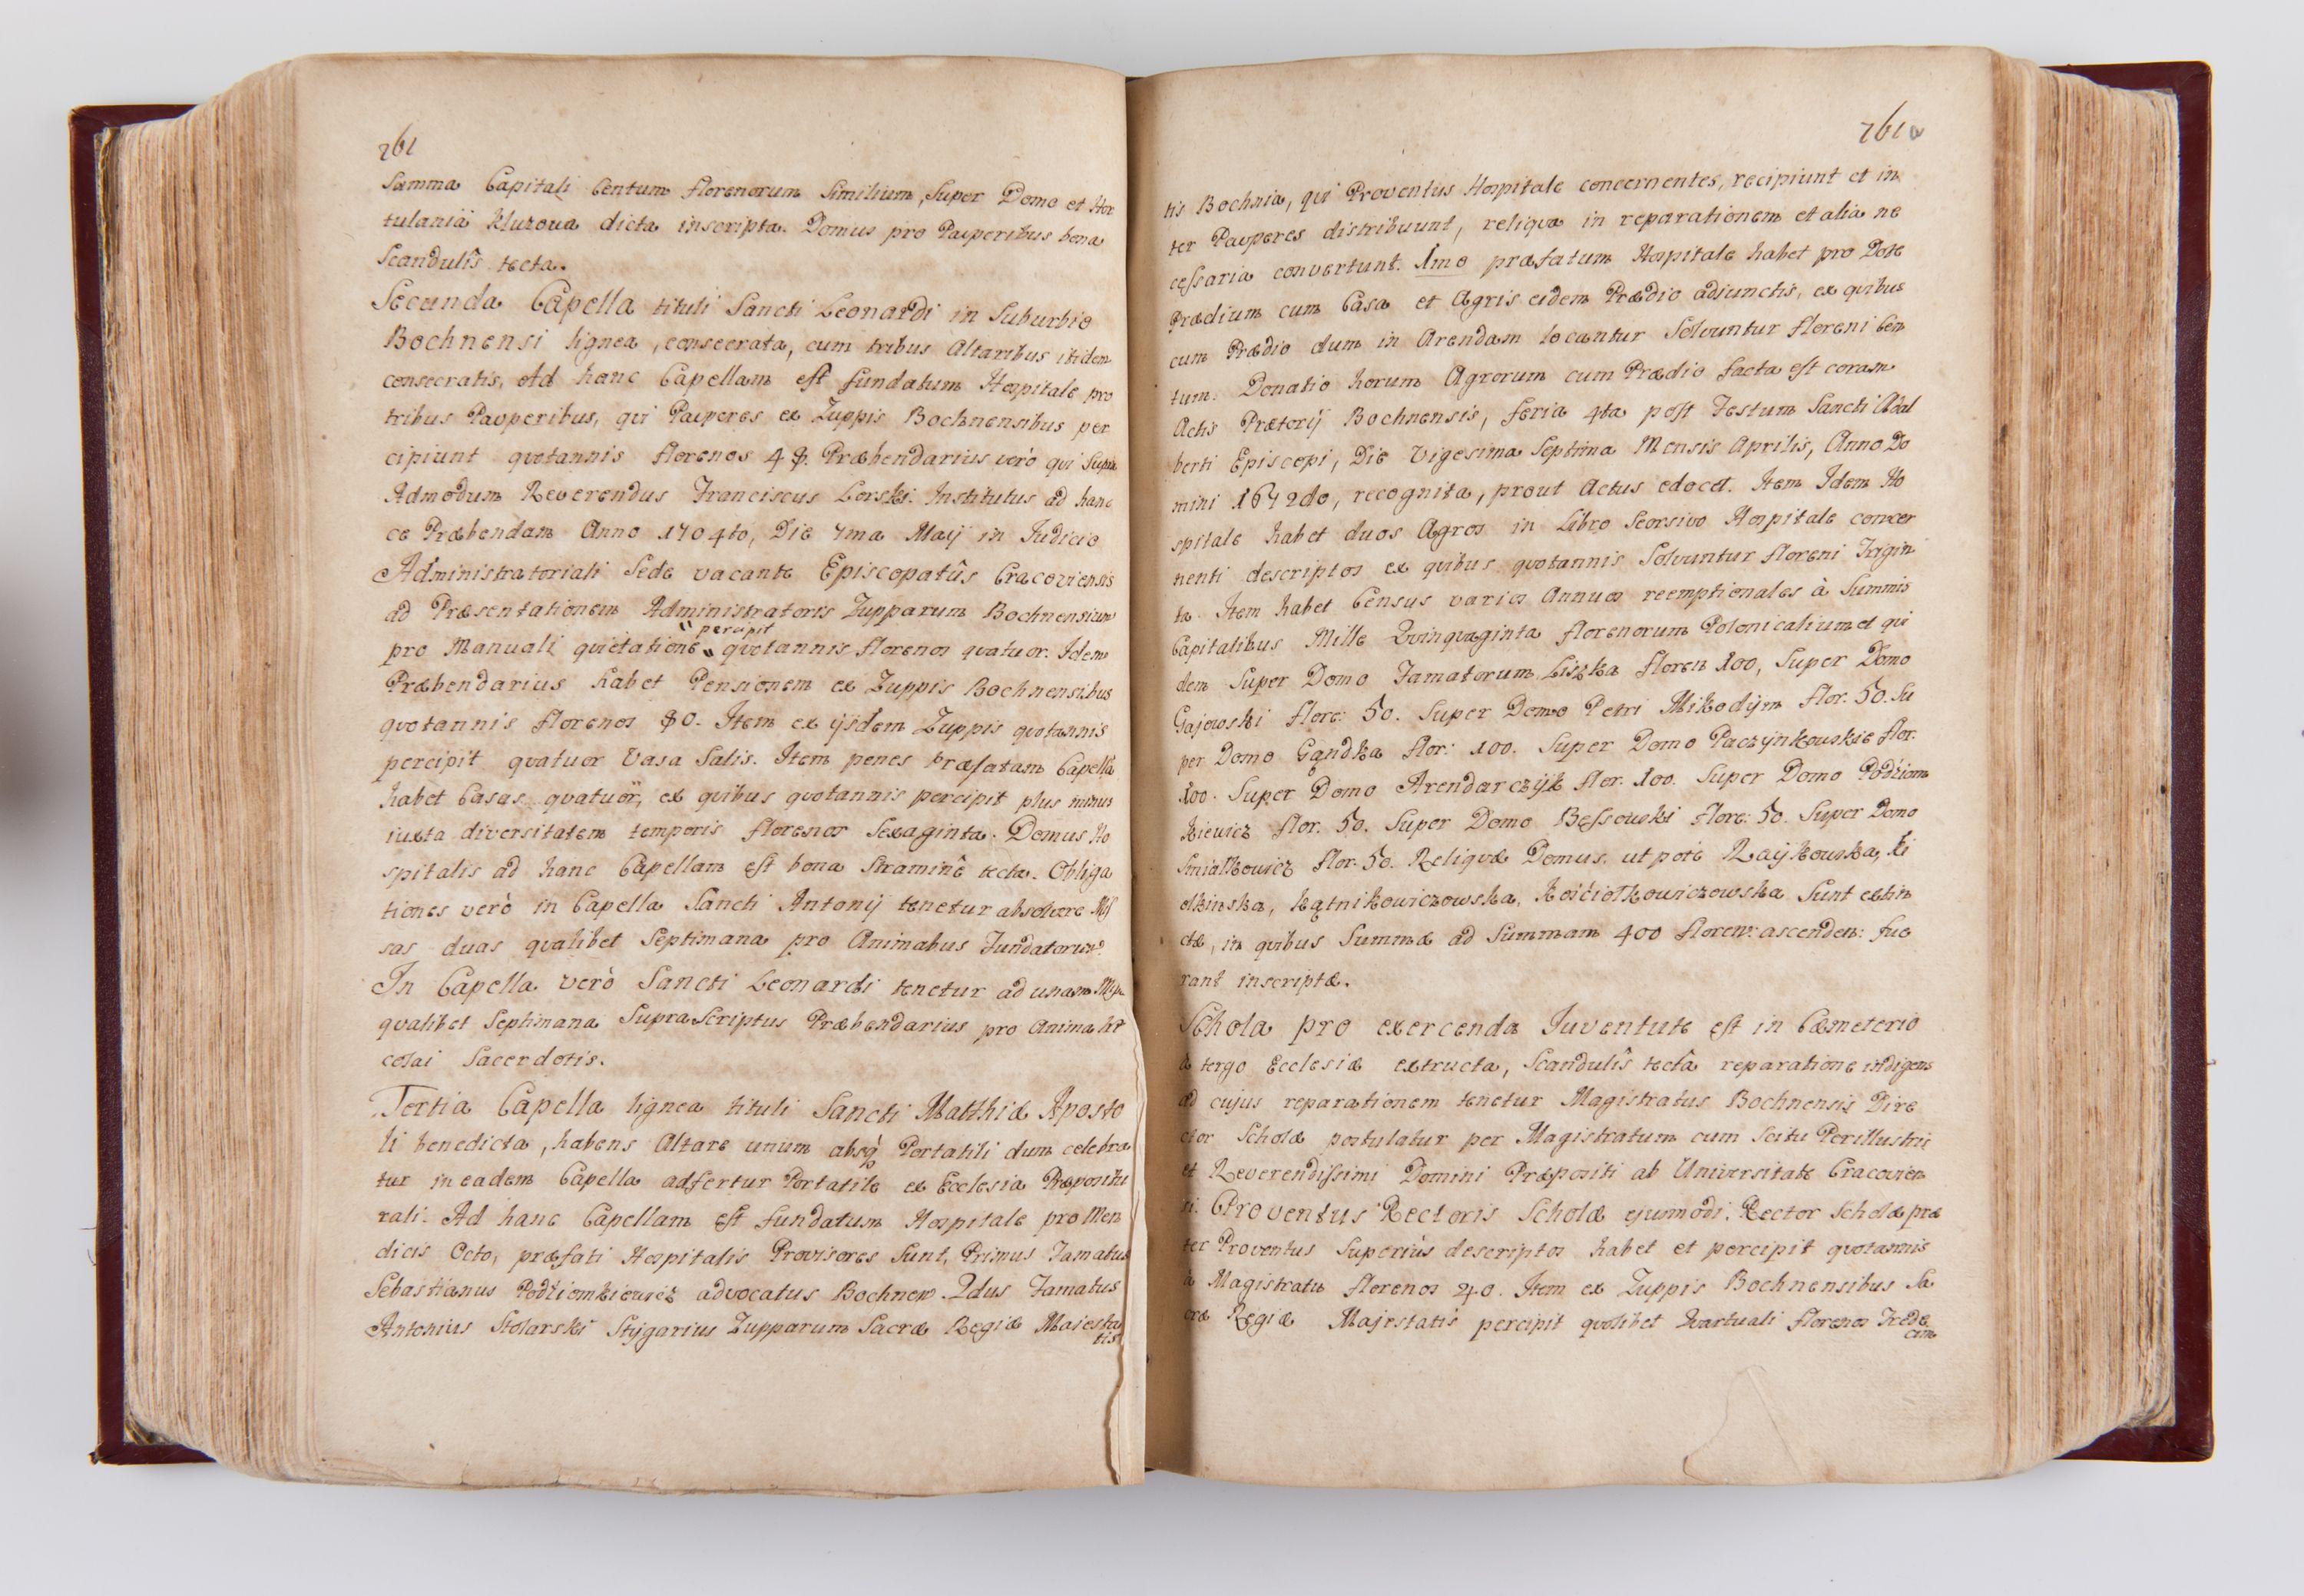 761
Summa Capitali Centum florenorum Similium, Super Domo et Hor
tulaniâ Kluzova dicta inscripta. Domus pro Pauperibus bona
Scandulîs tecta.
Secunda Capella tituli Sancti Leonardi in Suburbio
Bochnensi lignea, consecrata, cum tribus Altaribus itidem
consecratis, Ad hanc Capellam est fundatum Hospitale pro
tribus Pauperibus, qui Pauperes ex Zuppis Bochnensibus per
cipiunt quotannis florenos 48. Præbendarius verò qui Supra
Admodum Reverendus Franciscus Lorski. Institutus ad hanc
ce Præbendam Anno 1704to, Die 7ma Maij in Judicio
Administratoriali Sede vacante Episcopatûs Cracoviensis
ad Præsentationem Administratoris Zupparum Bochnensium
percipit
pro Manuali quietatione quotannis florenos quatuor. Idem
Præbendarius habet Pensionem ex Zuppis Bochnensibus
quotannis florenos 80. Item ex ijsdem Zuppis quotannis
percipit quatuor Vasa Salis. Item penes præfatam Capellã
habet Casas quatuor, ex quibus quotannis percipit plus minus
iuxta diversitatem temporis florenos Sexaginta. Domus Ho
spitalis ad hanc Capellam est bona Straminê tecta. Obliga
tiones verò in Capella Sancti Antonij tenetur absolvere Mis
sas duas qualibet Septimana pro Animabus Fundatorum
In Capella verò Sancti Leonardi tenetur ad unam
qualibet Septimana SupraScriptus Præbendarius pro Anima Ni
colai Sacerdotis.
Tertia Capella lignea tituli Sancti Matthiæ Aposto
li benedicta, habens Altare unum absq Portatili dum celebra
tur in eadem Capella adfertur Portatile ex Ecclesia Præpositu
rali. Ad hanc Capellam est fundatum Hospitale pro Men
dicis Octo, præfati Hospitalis Provisores Sunt, Primus Famatus
Sebastianus Podziomkiewicz advocatus Bochnen. 2dus Famatus
Antonius Stolarski Stygarius Zupparum Sacræ Regiæ Maiesta
tis
761a
tis Bochnia, qui Proventus Hospitale concernentes, recipiunt et in
ter Pauperes distribuunt, reliqua in reparationem et alia ne
cessaria convertunt. 1mo præfatum Hospitale habet pro Dote
Prædium cum Casa et Agris eidem Prædio adjunctis, ex quibus
cum Prædio dum in Arendam locantur Solvuntur floreni Cen
tum. Donatio horum Agrorum cum Prædio facta est coram
Actis Prætorij Bochnensis, feria 4ta post Festum Sancti Adal
berti Episcopi, Die Vigesima Septima Mensis Aprilis, Anno Do
mini 1642do, recognita, prout Actus edocet. Item Idem Ho
spitale habet duos Agros in Libro Seorsivo Hospitale concer
nenti descriptos ex quibus quotannis Solvuntur floreni Trigin
ta. Item habet Census varios Annuos reemptionales à Summis
Capitalibus Mille Quinquaginta florenorum Polonicalium et qui
dem Super Domo Famatorum Liszka floren 100, Super Domo
Gajowski flore: 50. Super Domo Petri Mikodym flor. 50. Su
per Domo Gandka flor: 100. Super Domo Paczynkowskie flor.
100. Super Domo Arendarczyk flor. 100. Super Domo Podziom
kiewicz flor. 50. Super Domo Bessowski flore: 50. Super Domo
Smiałkowicz flor. 50. Reliquæ Domus. ut pote Raykowska, Ki
olkinska, Kątnikowiczowska, Kościołkowiczowska Sunt extin
ctæ, in quibus Summæ ad Summam 400 floren: ascenden: fue
rant inscriptæ.
Schola pro exercenda Juventute est in Cæmeterio
à tergo Ecclesiæ extructa, Scandulîs tectâ reparatione indigens
ad cujus reparationem tenetur Magistratus Bochnensis Dire
ctor Scholæ postulatur per Magistratum cum Scitu Perillustris
et Reverendissimi Domini Præpositi ab Universitate Cracovien
si. Proventus Rectoris Scholæ ejusmodi. Rector Scholæ præ
ter Proventus Superiùs descriptos habet et percipit quotannis
à Magistratu florenos 20. Item ex Zuppis Bochnensibus Sa
cræ Regiæ Majestatis percipit quolibet Quartuali florenos Trede
cim